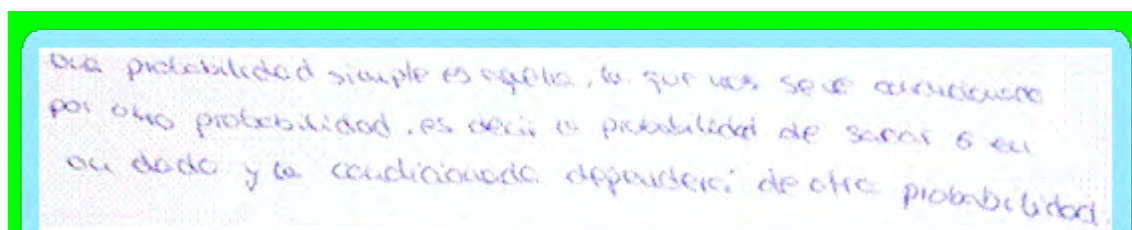 una probabilidad simple es aquella, la que no se ve condicionada
por otra probabilidad, es decir la probabilidad de sacar 6 en
un dado y la condicionada dependerá de otra probabilidad.